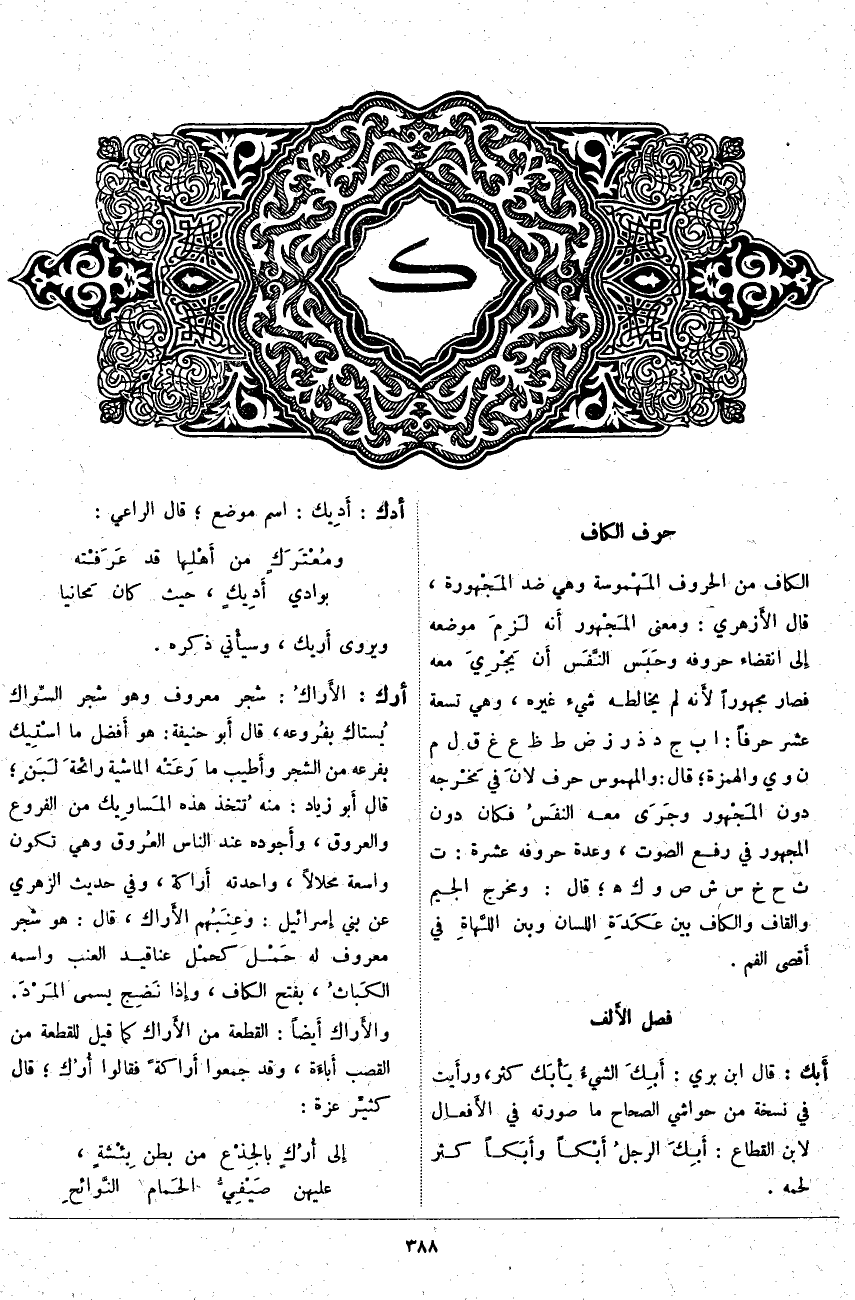 ك
حرف الكاف
الكاف من الحروف المَهْموسة وهي ضد المَجْهورة ،
قال الأزهري : ومعنى المَجْهور أنه لَزِمَ موضعه
إلى انقضاء حروفه وحَبَس النَّفَس أن يَجْرِيَ معه
فصار مجهوراً لأنه لم يخالطه شيء غيره ، وهي تسعة
عشر حرفاً : ا ب ج د ذ ر ز ض ط ظ ع غ ق ل م
ن و ي والهمزة ؛ قال : والمهموس حرف لانَ في مَخْرجه
دون المَجْهور وجَرَى معه النفَسُ فكان دون
المجهور في رفع الصوت ، وعدة حروفه عشرة : ت
ث ح خ س ش ص و ك ه ؛ قال : ومخرج الجيم
والقاف والكاف بين عَكَدَةِ اللسان وبين اللَّهاةِ في
أقصى الفم .
فصل الألف
أبك : قال ابن بري : أَبِكَ الشيءُ يَأْبَك كثر ، ورأيت
في نسخة من حواشي الصحاح ما صورته في الأفعال
لابن القطاع : أَبِكَ الرجلُ أَبْكاً وأَبَكاً كثر
لحمه .
أدك : أَدِيك : اسم موضع ؛ قال الراعي :
ومُعْتَرَكٍ من أَهْلِها قد عَرَفْته
بوادي أَدِيكٍ ، حيث كان مَحانيا
ويروى أَريك ، وسيأتي ذكره .
أرك : الأَراكُ : شجر معروف وهو شجر السِّواك
يُستاك بفُروعه ، قال أبو حنيفة : هو أفضل ما اسْتِيك
بفرعه من الشجر وأطيب ما رَعَتْه الماشية رائحةَ لَبَنٍ ؛
قال أبو زياد : منه تُتخذ هذه المَساوِيك من الفروع
والعروق ، وأجوده عند الناس العُروق وهي تكون
واسعة محلالاً ، واحدته أراكة ، وفي حديث الزهري
عن بني إسرائيل : وعِنَبُهم الأَراك ، قال : هو شجر
معروف له حَمْل كَحمْل عناقيد العنب واسمه
الكَباثُ ، بفتح الكاف ، وإذا نَضِج يسمى المَرْدَ .
والأَراك أيضاً : القطعة من الأراك كما قيل للقطعة من
القصب أباءَة ، وقد جمعوا أَراكةً فقالوا أُرُك ؛ قال
كثيِّر عزة :
إلى أُرُكٍ بالجِذْعِ من بطن بِئْشةٍ ،
عليهن صَيْفِيُّ الحَمام النَّوائحِ
٣٨٨